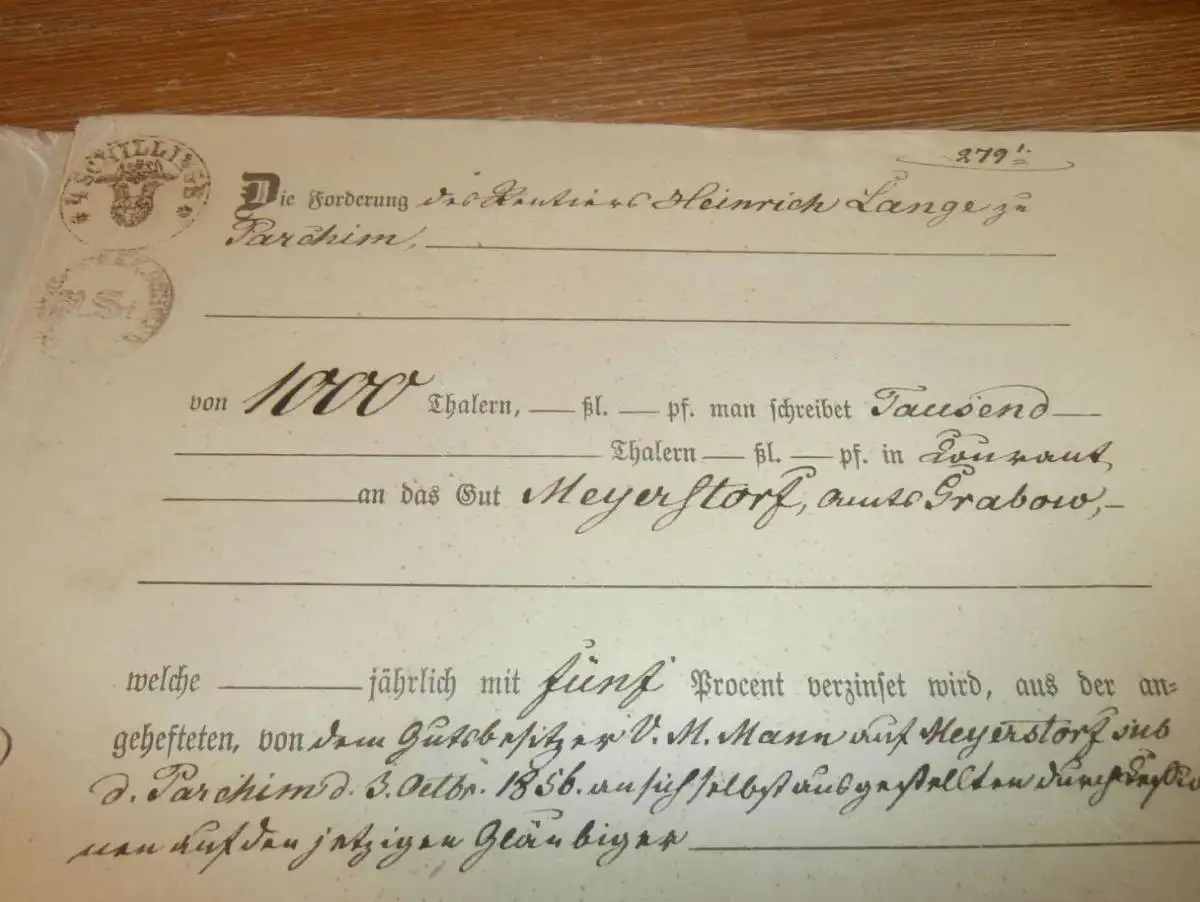 279!.
4 SCHILLINGE
Die Forderung des Rentiers Heinrich Lange zu
Parchim,
St
von 1000 Thalern, — ßl. — pf. man schreibet Tausend —
Thalern — ßl. — pf. in Courant
an das Gut Meyerstorf, Amts Grabow, —
welche — jährlich mit fünf Procent verzinset wird, aus der an=
gehefteten, von dem Gutsbesitzer V. M. Mann auf Meyerstorf sub
d. Parchim d. 3. Octbr. 1856. an sich selbst ausgestellten durch Cessio
nen auf den jetzigen Gläubiger